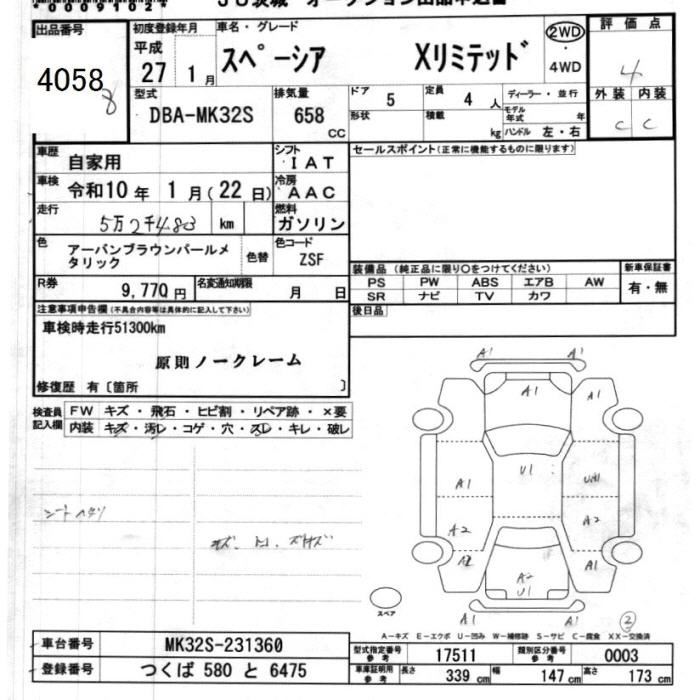 *00091020*
JU茨城 オークション出品申込書
出品番号
4058
8
初度登録年月
平成
27 1月
車名・グレード
スペーシア Xリミテッド
2WD
・
4WD
評価点
4
型式
DBA-MK32S
排気量
658
CC
ドア
5
定員
4 人
形状
積載
kg
ディーラー・並行
モデル年式 年
ハンドル 左・右
外装 内装
C C
車歴
自家用
シフト
IAT
車検
令和10年 1月(22日)
冷房
AAC
走行
5万2千483 km
燃料
ガソリン
色
アーバンブラウンパールメタリック
色替
色コード
ZSF
R券
9,770円
名変通知期限
月 日
セールスポイント(正常に機能するものに限ります)
装備品(純正品に限り○をつけてください)
PS PW ABS エアB AW
SR ナビ TV カワ
新車保証書
有・無
後日品
注意事項申告欄(不具合内容等は具体的に記入して下さい)
車検時走行51300km
原則ノークレーム
修復歴 有〔箇所 〕
検査員記入欄
FW キズ・飛石・ヒビ割・リペア跡・×要
内装 キズ・汚レ・コゲ・穴・スレ・キレ・破レ
シートヘタリ
A1 A1
A1 A1
A1 U1
A2 A2
A1
A2
U1
A1 A1
スペア
2
A-キズ E-エクボ U-凹み W-補修跡 S-サビ C-腐食 XX-交換済
車台番号 MK32S-231360
登録番号 つくば 580 と 6475
型式指定番号
参考
17511
類別区分番号
参考
0003
車庫証明用
参考
長さ 339 cm 幅 147 cm 高さ 173 cm